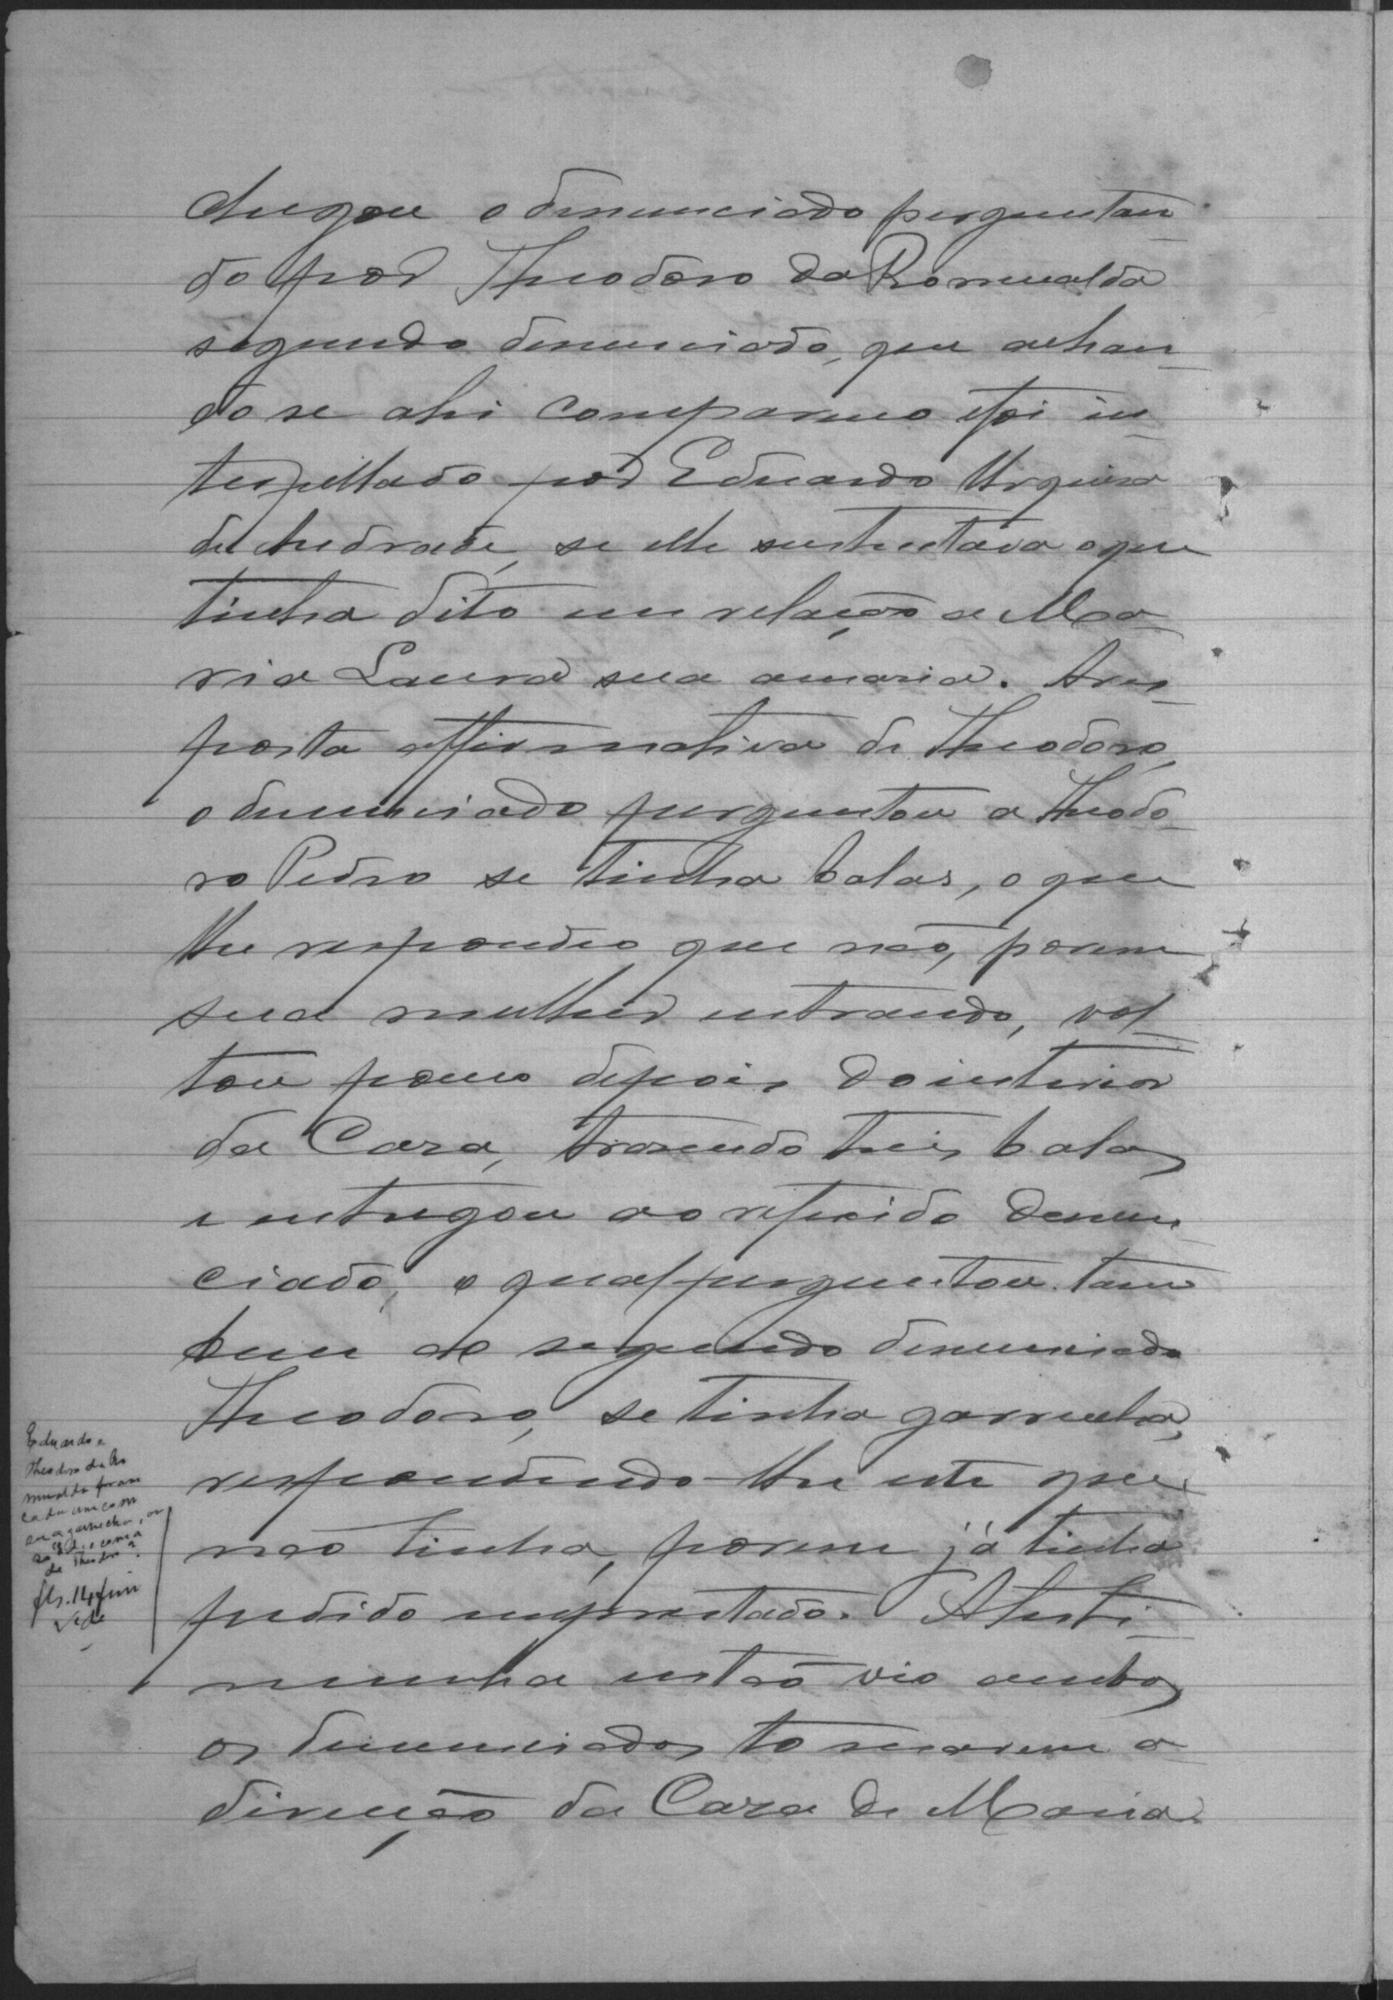 chegou o denunciado perguntan-
do por Theodoro da Romualda
segundo denunciado, que achan-
do se ahi compareceo e foi in-
terpellado por Eduardo Urquisa
de Andrade, se elle sustentava o que
tinha dito em relação a Ma-
ria Laura sua amasia. A res-
posta affirmativa de Theodoro,
o denunciado perguntou a Theodo-
ro Pedro se tinha balas, o que
lhe respondeo que não, porem
sua mulher entrando, vol-
tou pouco depois do interior
da Casa, trasendo tres balas
e entregou ao referido denun-
ciado, o qual perguntou tam
bem ao segundo denunciado
Theodoro, se tinha garrucha,
respondendo-lhe este que
não tinha, porem já tinha
pedido emprestado. A testi-
munha então vio ambos
os denunciados tomarem a
direcção da Casa de Maria
Eduardo e
Theodoro da Ro
mualda foram
cada um com
sua garrucha, ou
só Ed. e com a
de Theodoro?
fls. 14 fim
vide